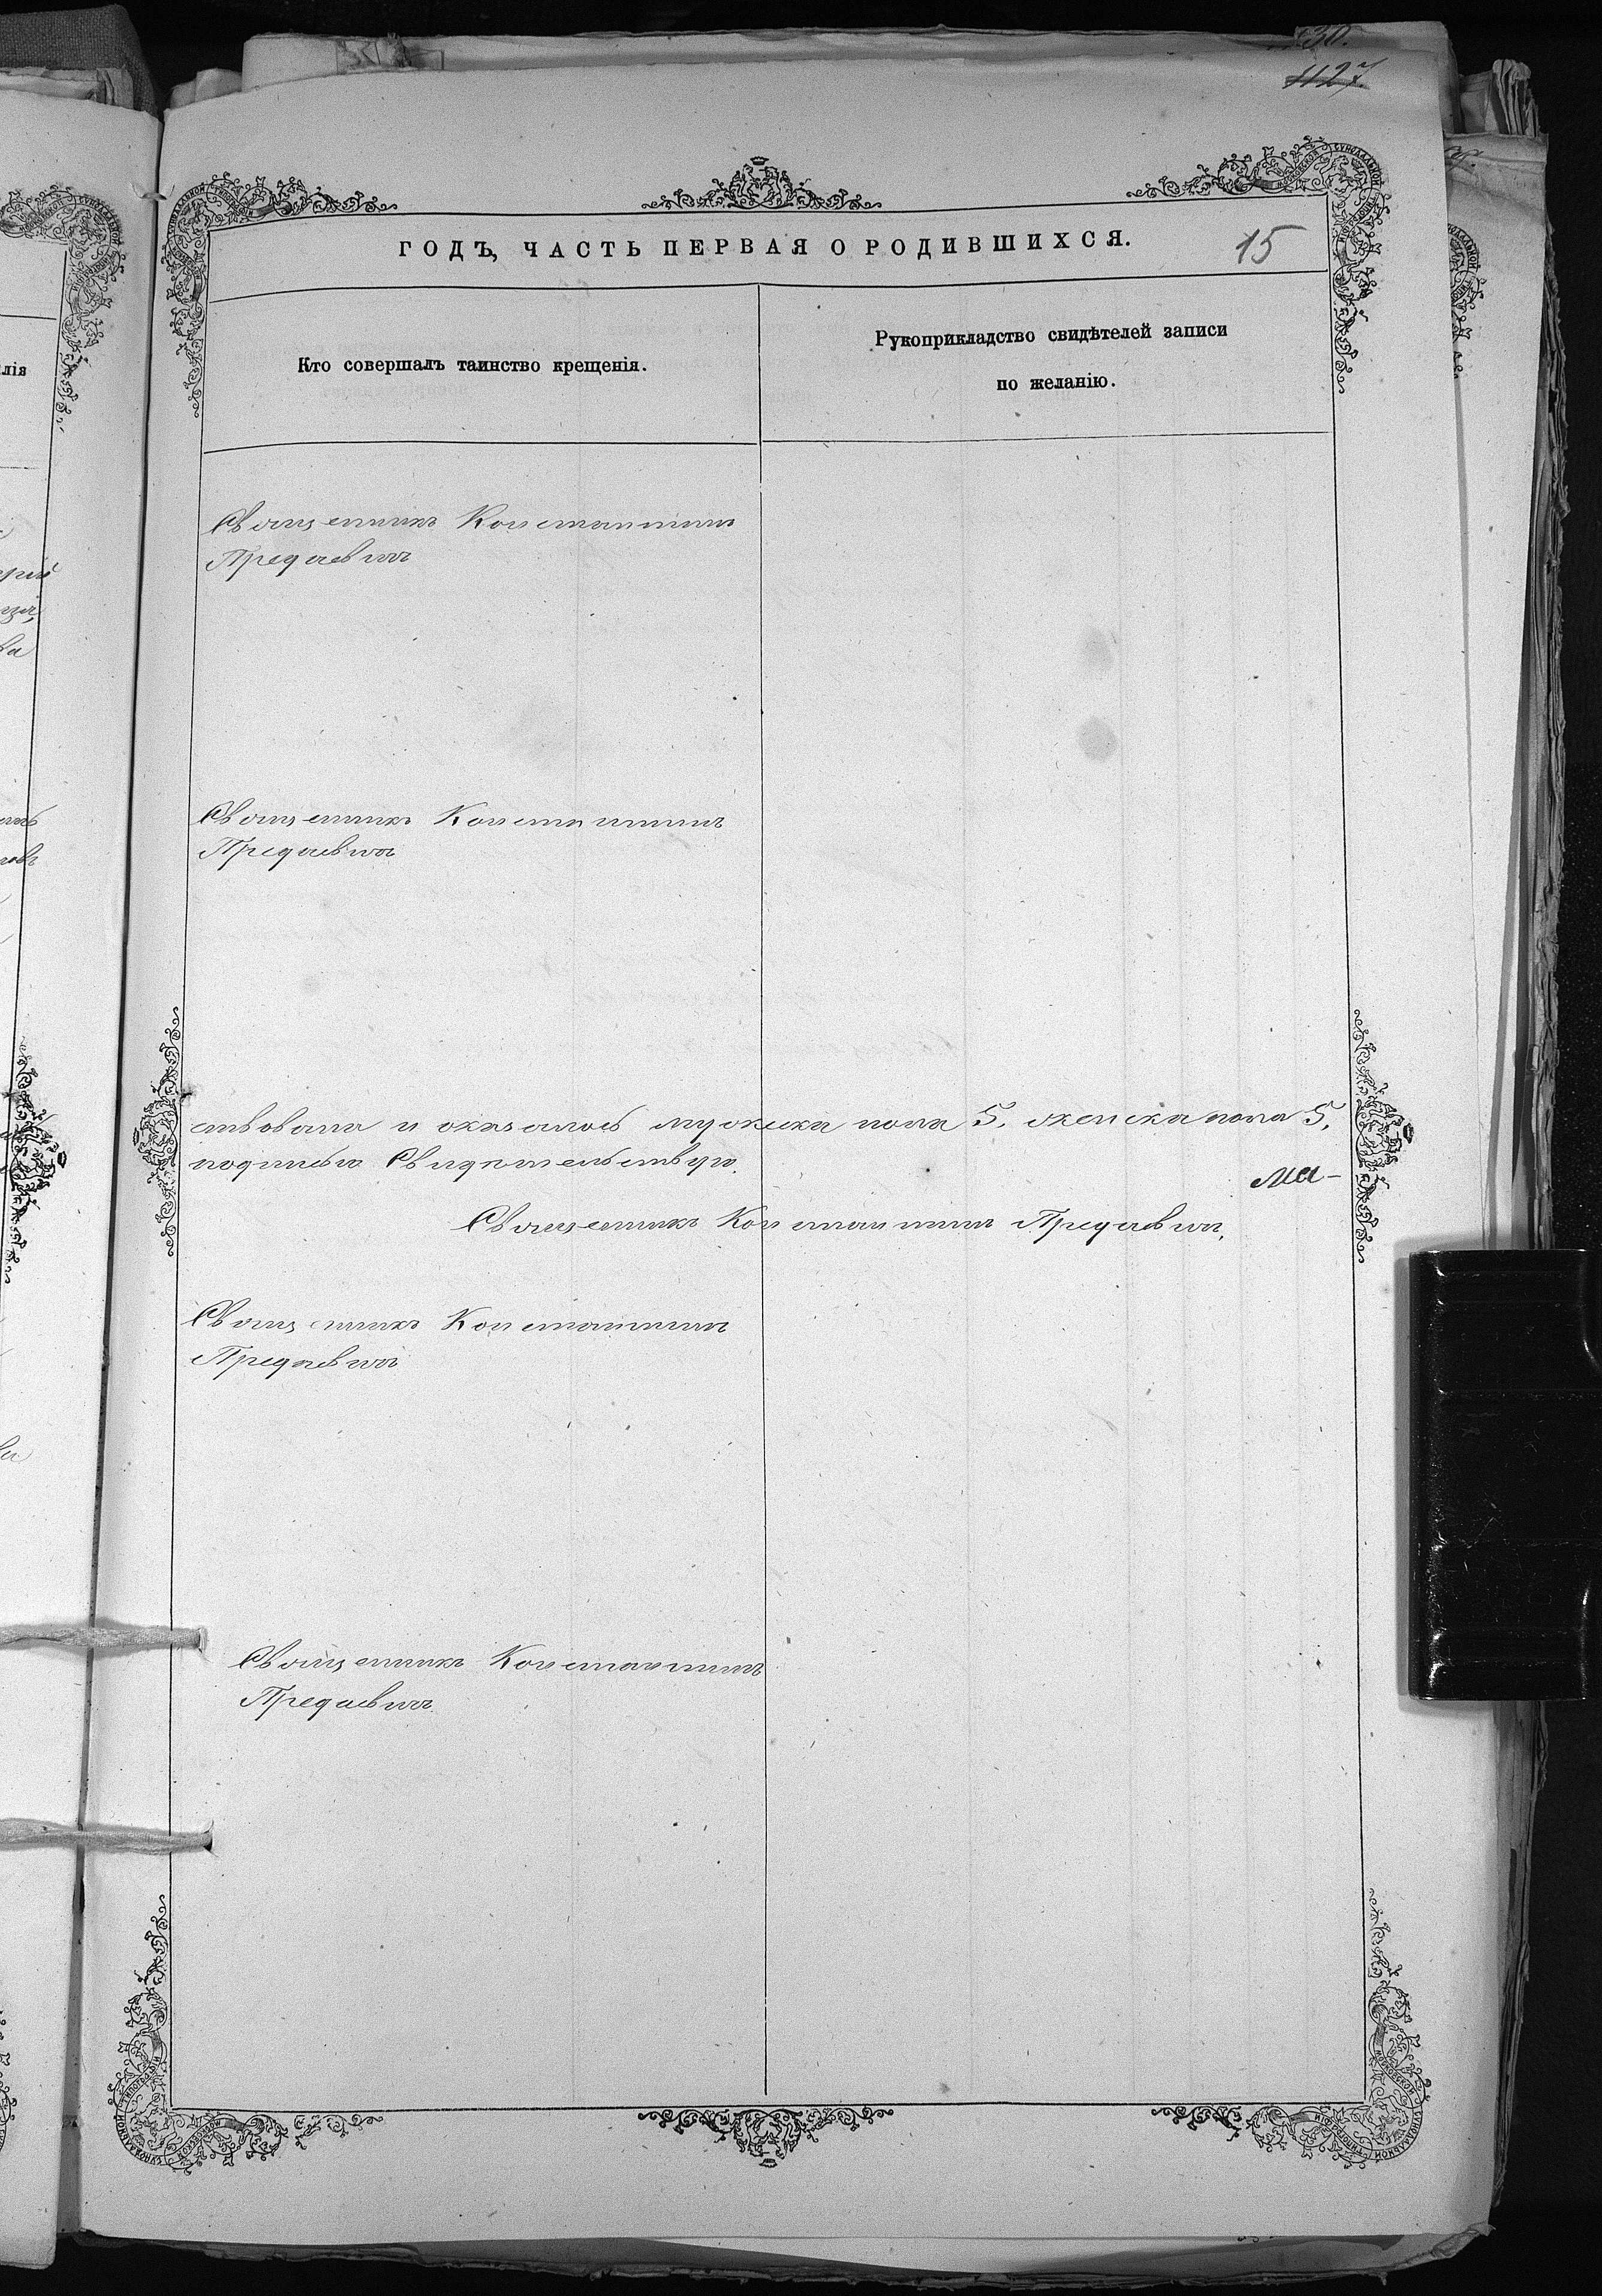 30.
1127
ГОДЪ, ЧАСТЬ ПЕРВАЯ О РОДИВШИХСЯ.
15
Кто совершалъ таинство крещенія.
Рукоприкладство свидѣтелей записи
по желанію.
Священникъ Константинъ
Предаевичъ
Священникъ Константинъ
Предаевичъ
ствовали и оказалось мужска пола 5. женска пола 5.
подписью Свидѣтельствую.
Священникъ Константинъ Предаевичъ.
Священникъ Константинъ
Предаевичъ
Священникъ Константинъ
Предаевичъ